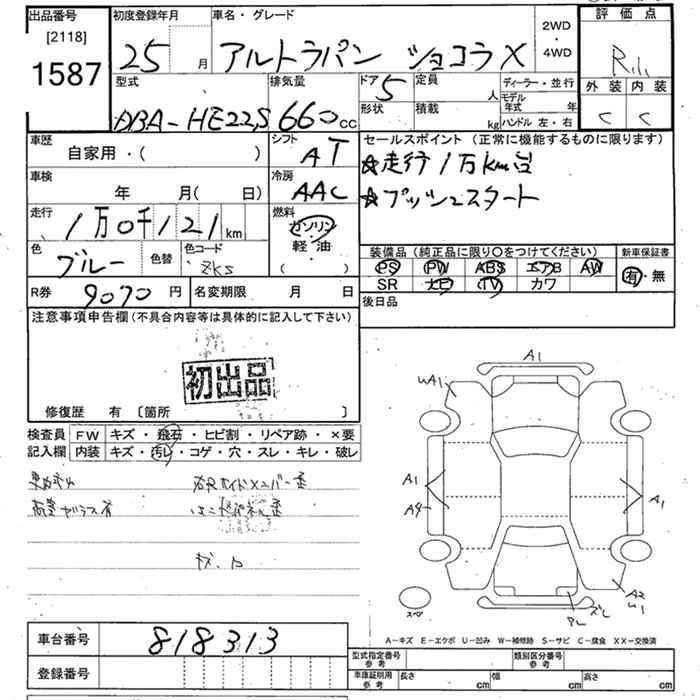 出品番号
[2118]
1587
初度登録年月
25 月
車名・グレード
アルトラパン ショコラX
2WD
・
4WD
評価点
R
外装 内装
C C
型式
DBA-HE22S
排気量
660 cc
ドア 5
定員 人
形状
積載 kg
ディーラー・並行
モデル年式 年
ハンドル 左・右
車歴
自家用・( )
シフト
AT
セールスポイント (正常に機能するものに限ります)
☆走行1万km台
☆プッシュスタート
車検
年 月( 日)
冷房
AAC
走行
1万0千121 km
燃料
ガソリン・
軽油・
( )
色
ブルー
色替
色コード
ZKS
装備品 (純正品に限り○をつけてください)
PS PW ABS エアB AW
SR ナビ TV カワ
新車保証書
有・無
R券 9070 円
名変期限 月 日
後日品
注意事項申告欄 (不具合内容等は具体的に記入して下さい)
初出品
修復歴 有 〔箇所 〕
検査員
記入欄
FW キズ・飛石・ヒビ割・リペア跡・×要
内装 キズ・汚レ・コゲ・穴・スレ・キレ・破レ
A1
A1
A1
A1
A2
スペア
A-キズ E-エクボ U-凹み W-補修跡 S-サビ C-腐食 XX-交換済
車台番号 818313
登録番号
型式指定番号
参考
類別区分番号
参考
車庫証明用
参考
長さ cm 幅 cm 高さ cm